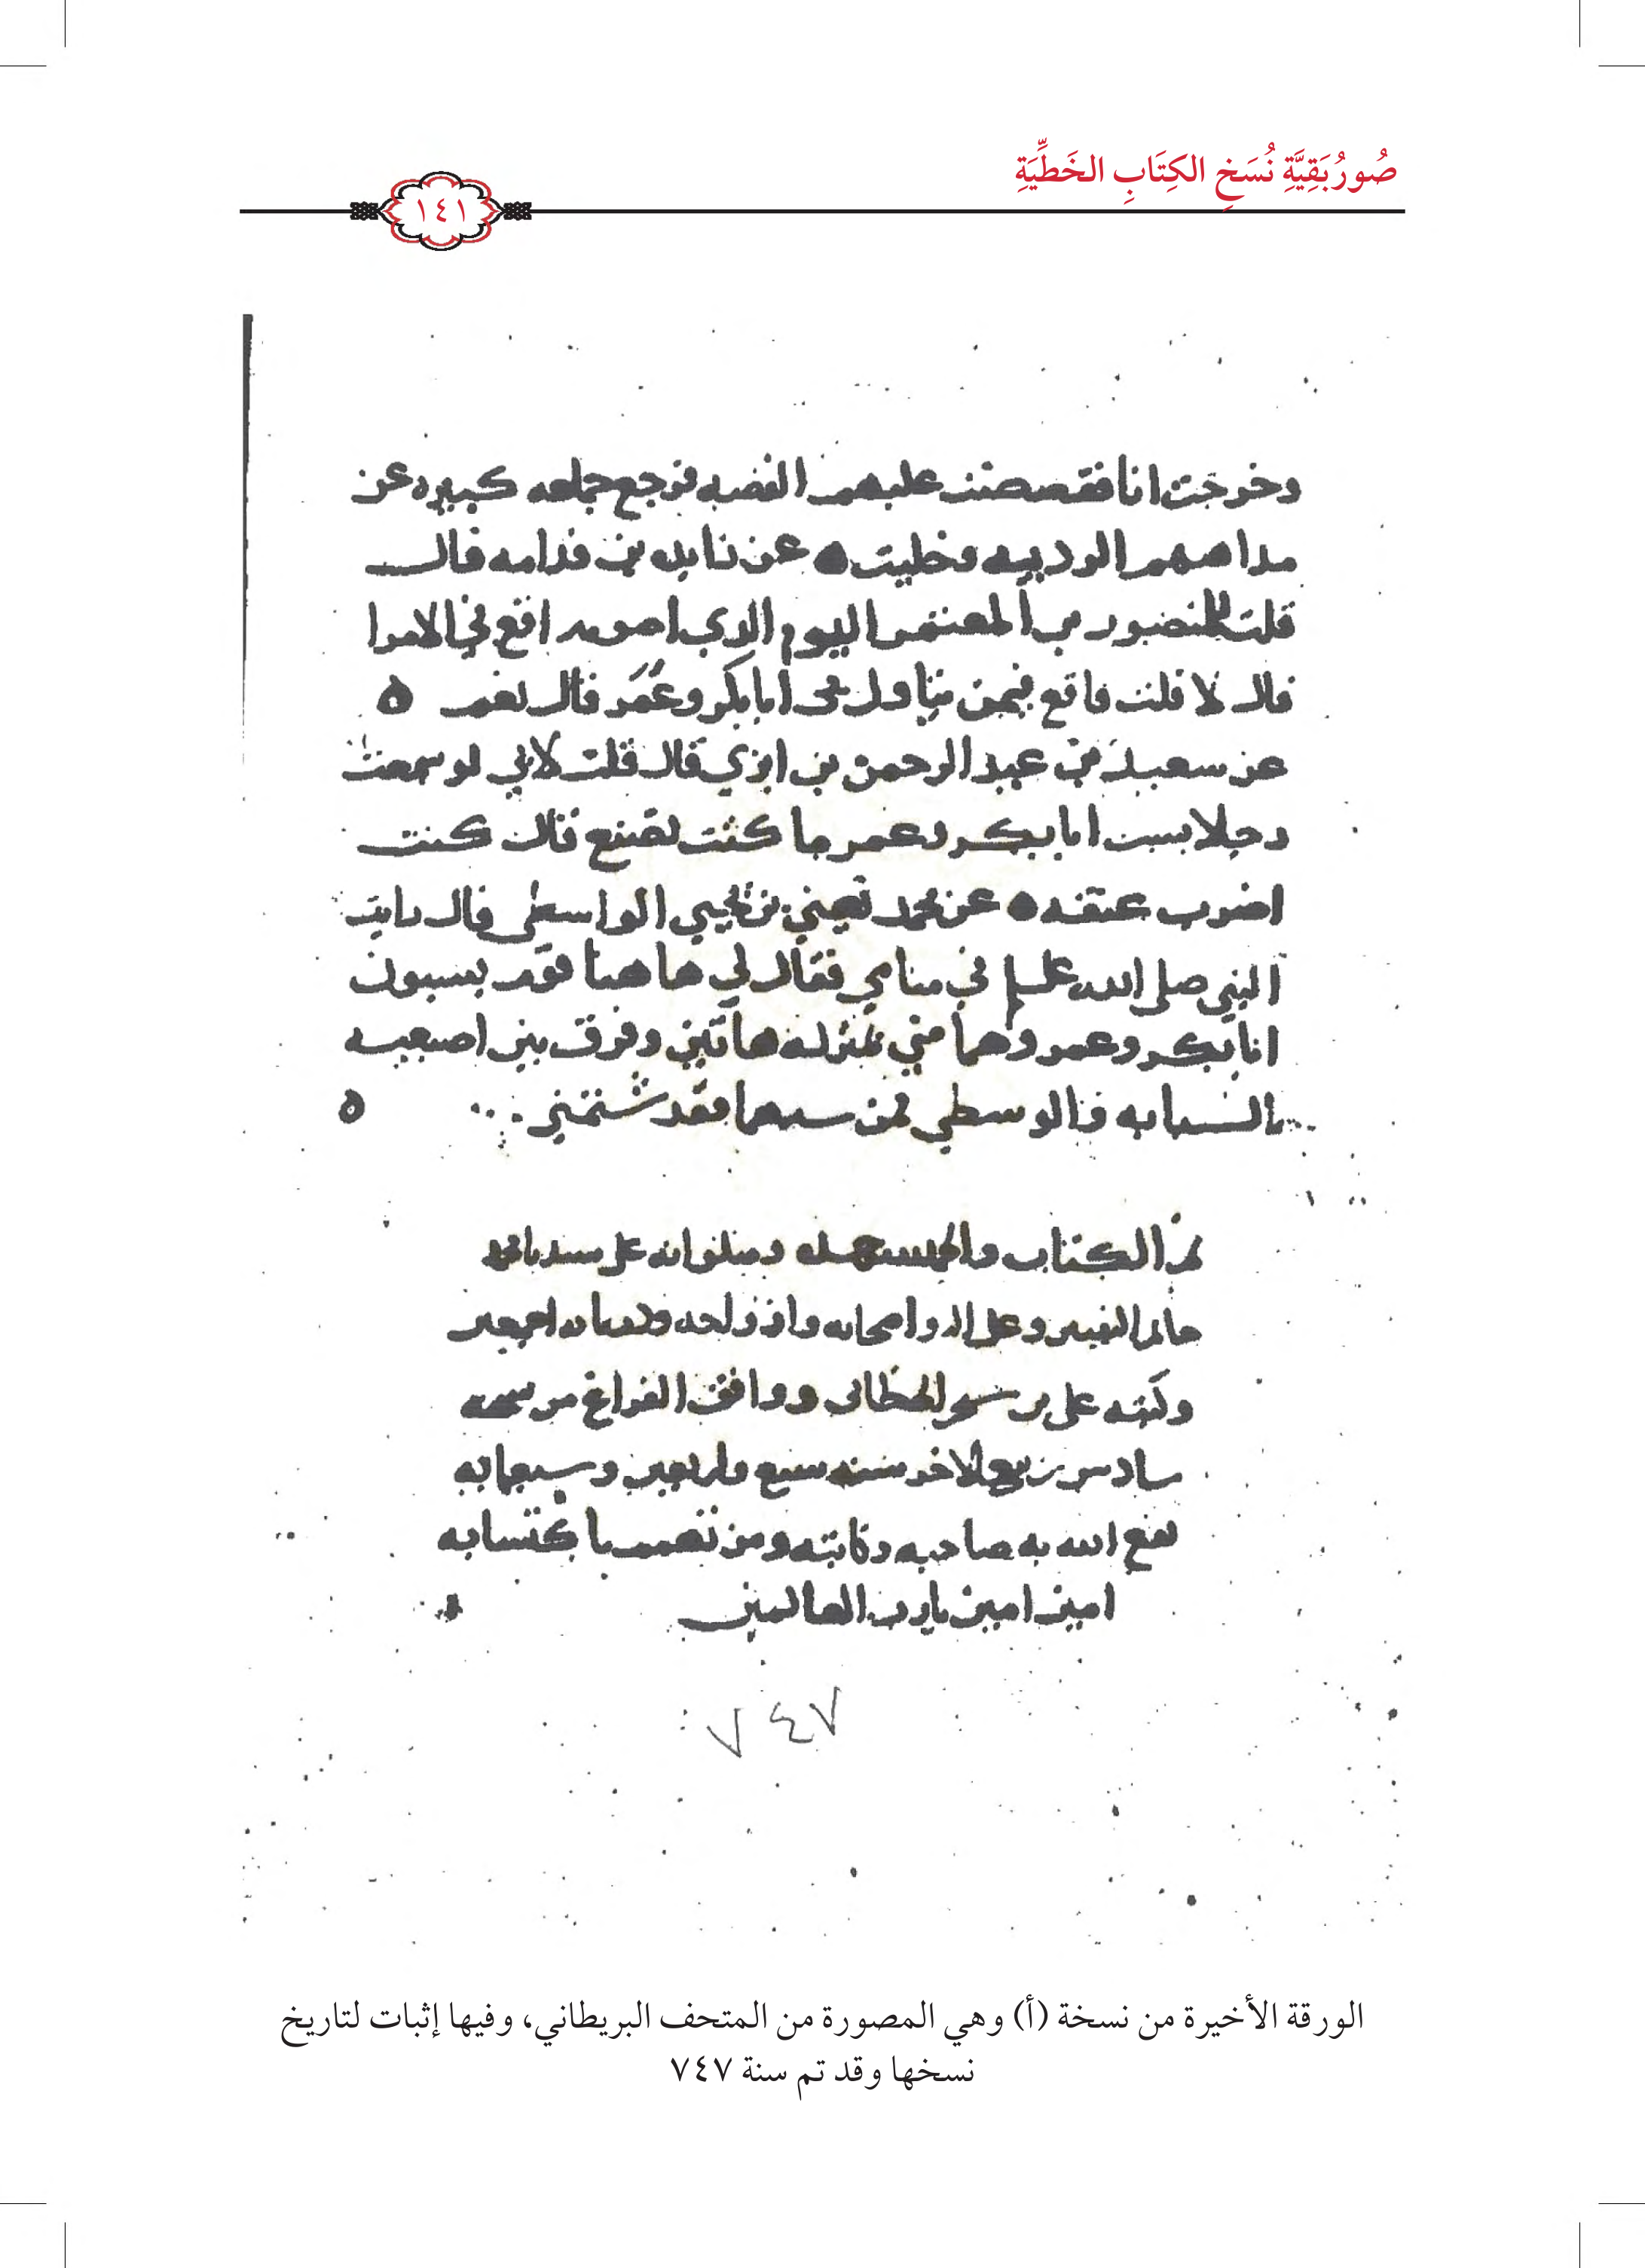 صُورُ بَقِيَّةِ نُسَخِ الكِتَابِ الخَطِّيَّةِ
١٤١
وخرجت انا فقصصت عليهم القصه فرجع جماعه كبيره عن
مداهبهم الرديه وخليت ه عن زايده بن قدامه قالــ
قلت للمنصور بن المعتمر اليوم الذي اصومه اقع في الامرا
قال لا قلت فاقع فيمن يتناول من ابا بكر وعمر قال نعم ه
عن سعيد بن عبد الرحمن بن ابزي قال قلت لابي لو سمعت
رجلا يسب ابا بكر وعمر ما كنت تصنع قال كنت
اضرب عنقه ه عن محمد بن يحيي الواسطي قال رايت
النبي صلى الله عليه في منامي فقال لي ها هنا قوم يسبون
ابا بكر وعمر وهما مني بمنزلة هاتين وفرق بين اصبعيه
بالسبابه والوسطي فمن سبهما فقد شتمني ه
تم الكتاب والحمد لله وصلواته على سيدنا محمد
خاتم النبيين وعلى اله واصحابه وازواجه اجمعين
وكتبه على بن الخطابى ووافق الفراغ من نسخه
سادس ربيع الاخر سنه سبع واربعين وسبعمايه
نفع الله به صاحبه وكاتبه ومن باكتسابه
امين امين يا رب العالمين
٧٤٧
الورقة الأخيرة من نسخة (أ) وهي المصورة من المتحف البريطاني، وفيها إثبات لتاريخ
نسخها وقد تم سنة ٧٤٧